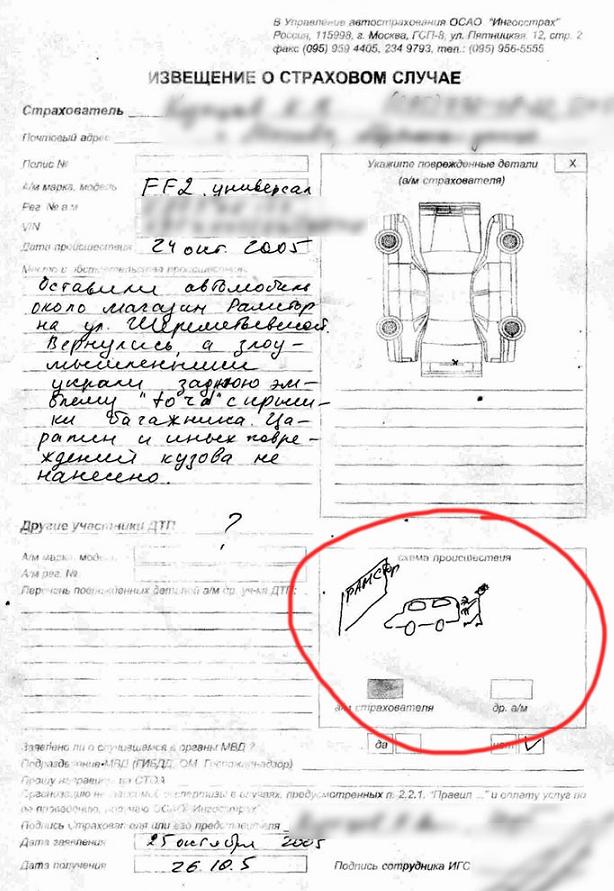 В Управление автострахования ОСАО "Ингосстрах"
Россия, 115998, г. Москва, ГСП-8, ул. Пятницкая, 12, стр. 2
факс (095) 959 4405, 234 9793, тел.: (095) 956-5555
ИЗВЕЩЕНИЕ О СТРАХОВОМ СЛУЧАЕ
Страхователь
Почтовый адрес
Полис №
Укажите поврежденные детали
X
(а/м страхователя)
А/м марка, модель FF2 универсал
Рег. № а/м
VIN
Дата происшествия 24 окт. 2005
Место и обстоятельства происшествия:
Оставили автомобиль
около магазин Рамстор
на ул. Шереметьевской.
Вернулись, а злоу-
мышленники
украли заднюю эм-
блему "ford" с крыш-
ки багажника. Ца-
рапин и иных повре-
ждений кузова не
нанесено.
Другие участники ДТП ?
А/м марка, модель
А/м рег. №
Перечень поврежденных деталей а/м др. уч-ка ДТП:
схема происшествия
РАМСТОР
а/м страхователя
др. а/м
Заявлено ли о случившемся в органы МВД ?
да
нет
Подразделение МВД (ГИБДД, ОМ, Госпожнадзор)
Прошу направить на СТОА
Организацию независимой экспертизы в случаях, предусмотренных п. 2.2.1. "Правил ..." и оплату услуг по
ее проведению, поручаю ОСАО "Ингосстрах"
Подпись Страхователя или его представителя
Дата заявления 25 октября 2005
Дата получения 26.10.5
Подпись сотрудника ИГС